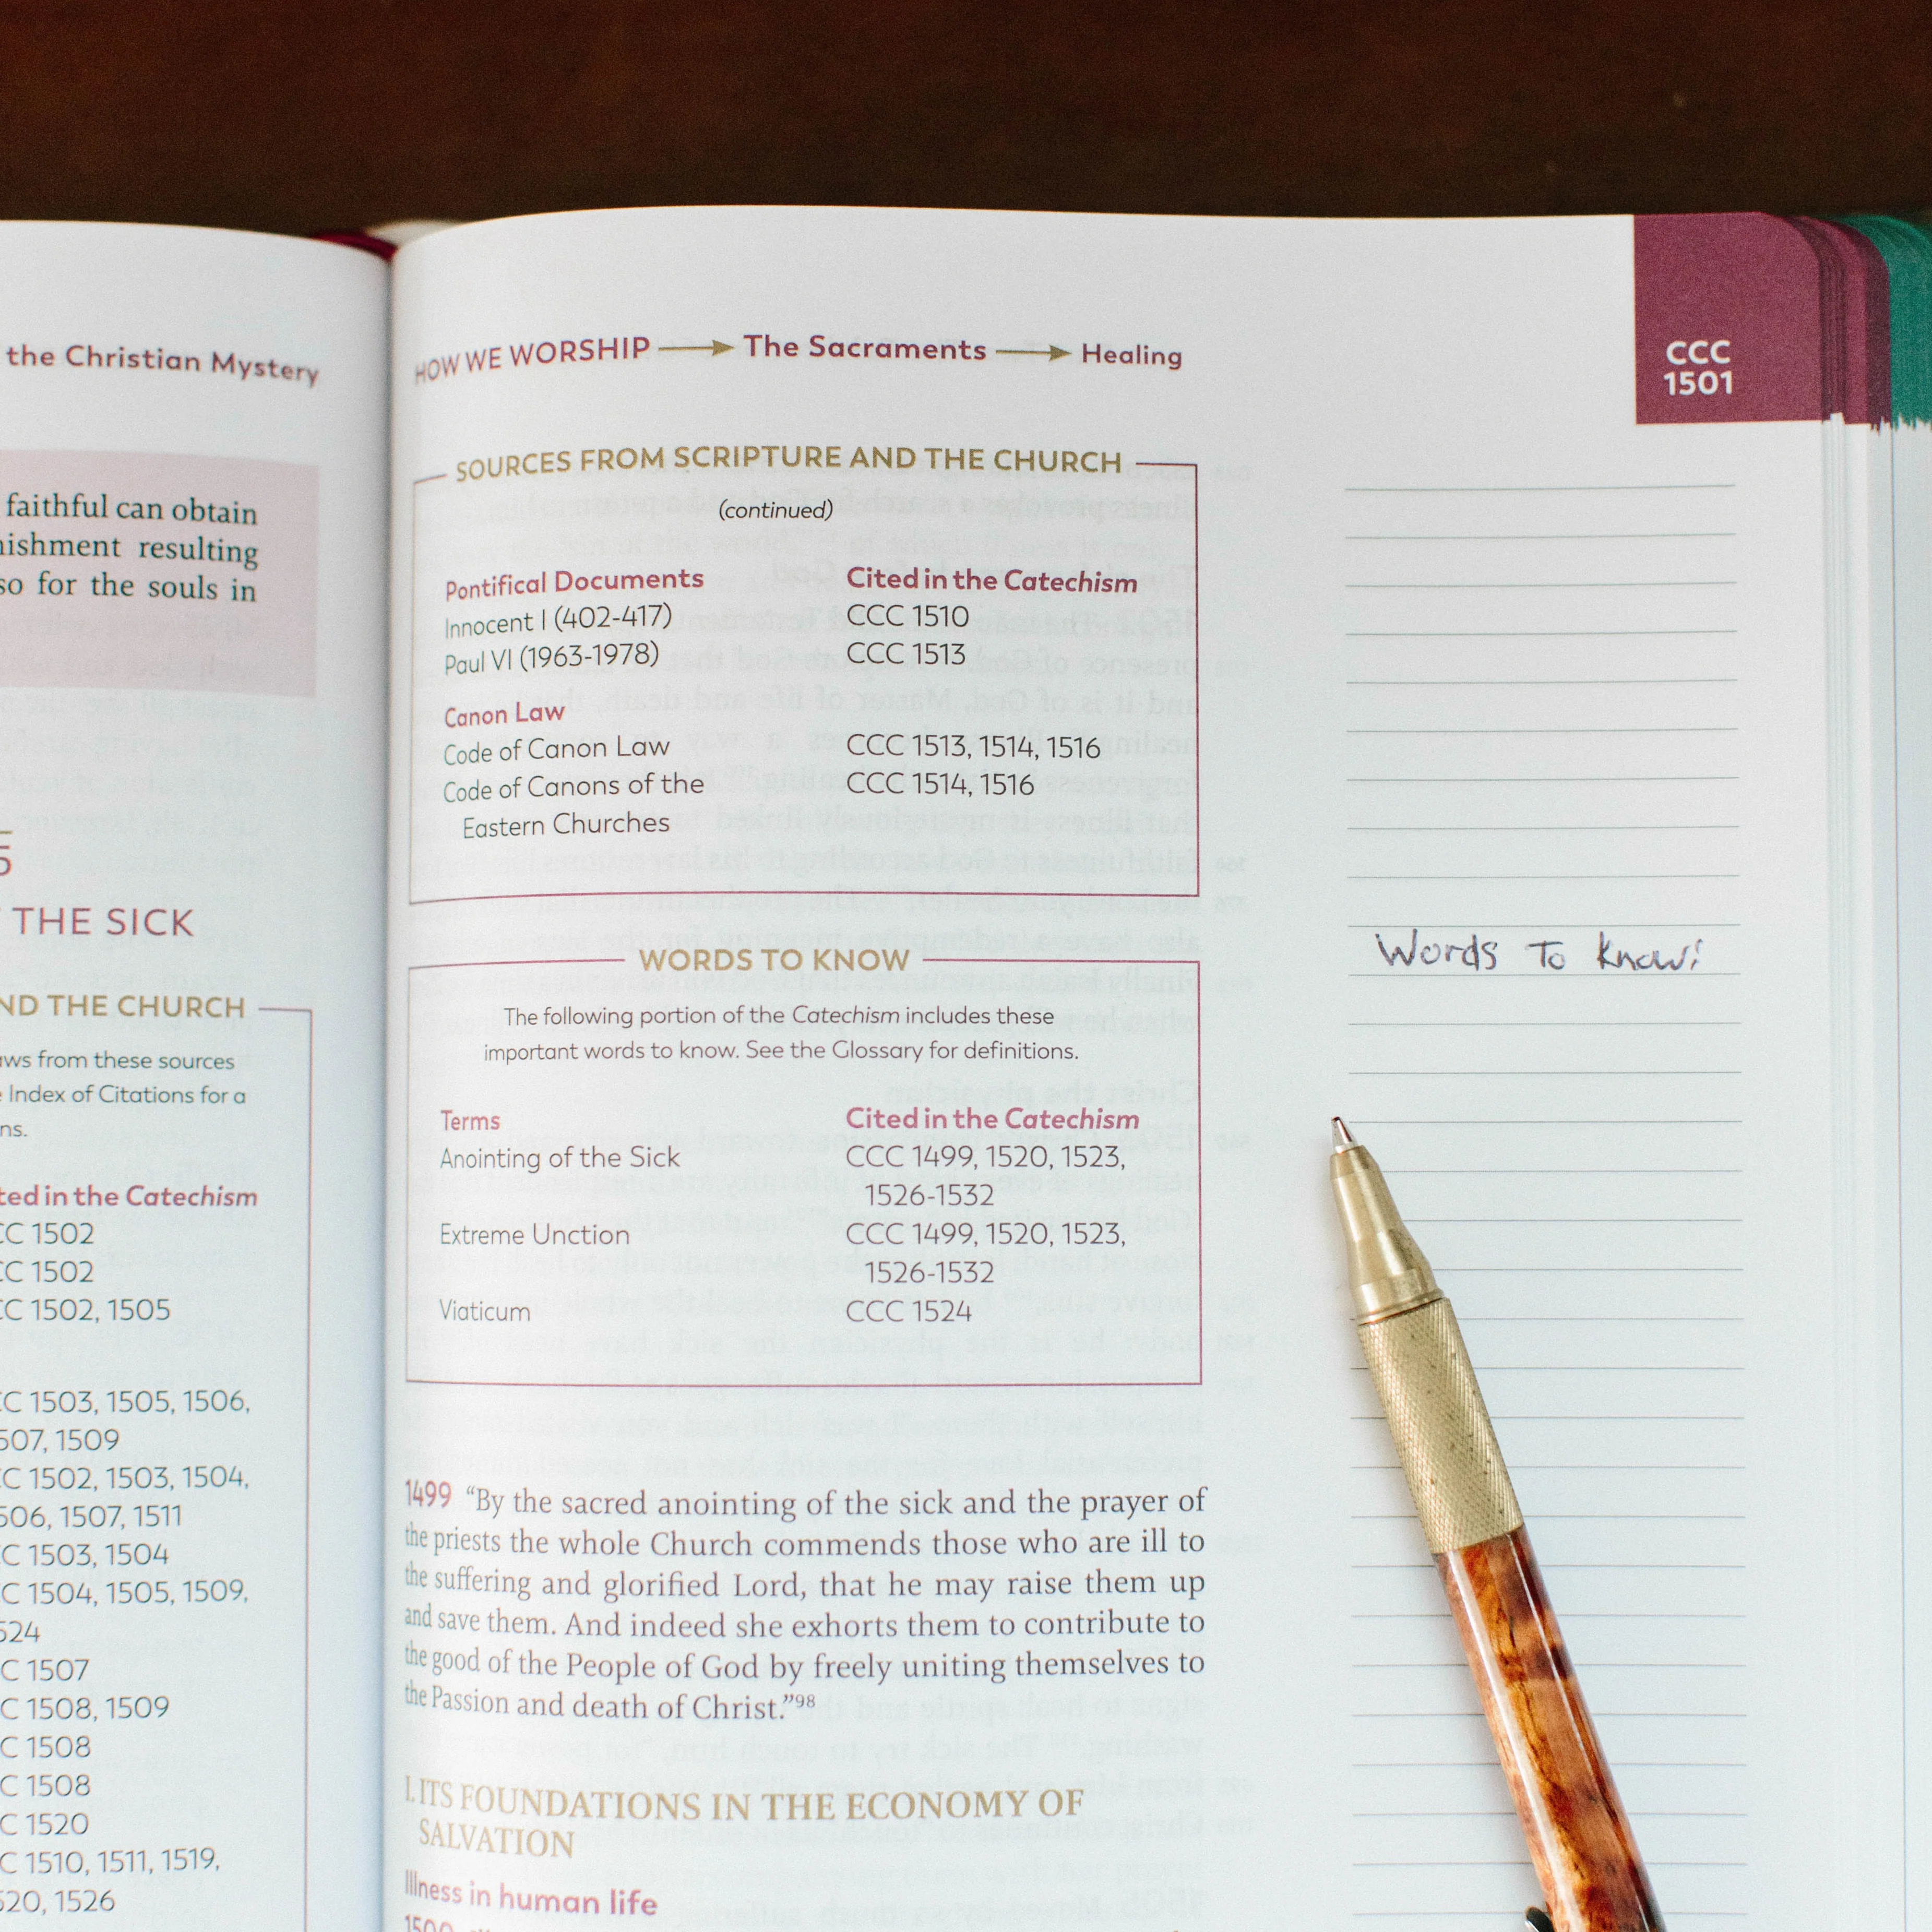 the Christian Mystery
faithful can obtain
resulting
so for the souls in
5
THE SICK
AND THE CHURCH
from these sources
Index of Citations for a
Cited in the Catechism
CCC 1502
CCC 1502
CCC 1502, 1505
CCC 1503, 1505, 1506,
1507, 1509
CCC 1502, 1503, 1504,
1506, 1507, 1511
CCC 1503, 1504
CCC 1504, 1505, 1509,
1524
CCC 1507
CCC 1508, 1509
CCC 1508
CCC 1508
CCC 1520
CCC 1510, 1511, 1519,
1520, 1526
HOW WE WORSHIP → The Sacraments → Healing
CCC
1501
SOURCES FROM SCRIPTURE AND THE CHURCH
(continued)
Pontifical Documents Cited in the Catechism
Innocent I (402-417) CCC 1510
Paul VI (1963-1978) CCC 1513
Canon Law
Code of Canon Law CCC 1513, 1514, 1516
Code of Canons of the CCC 1514, 1516
Eastern Churches
WORDS TO KNOW
The following portion of the Catechism includes these
important words to know. See the Glossary for definitions.
Terms Cited in the Catechism
Anointing of the Sick CCC 1499, 1520, 1523,
1526-1532
Extreme Unction CCC 1499, 1520, 1523,
1526-1532
Viaticum CCC 1524
1499 “By the sacred anointing of the sick and the prayer of
the priests the whole Church commends those who are ill to
the suffering and glorified Lord, that he may raise them up
and save them. And indeed she exhorts them to contribute to
the good of the People of God by freely uniting themselves to
the Passion and death of Christ.”98
I. ITS FOUNDATIONS IN THE ECONOMY OF
SALVATION
Illness in human life
1500
Words To Know: